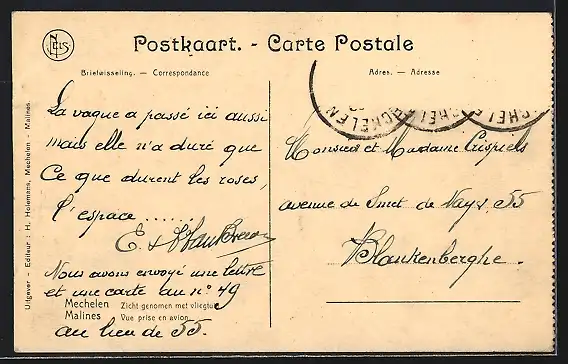 NELS
Postkaart. - Carte Postale
Briefwisseling. — Correspondance
Adres. — Adresse
La vague a passé ici aussi
mais elle n'a duré que
Ce que durent les roses,
l'espace .......
E.
Nous avons envoyé une lettre
et une carte au n° 49
au lieu de 55.
Mechelen Zicht genomen met vliegtuig
Malines Vue prise en avion
Uitgever - Editeur : H. Holemans, Mechelen - Malines
MECHELEN
CHELE
CHELE
Monsieur et Madame
avenue de Smet de Nayer 55
Blankenberghe.